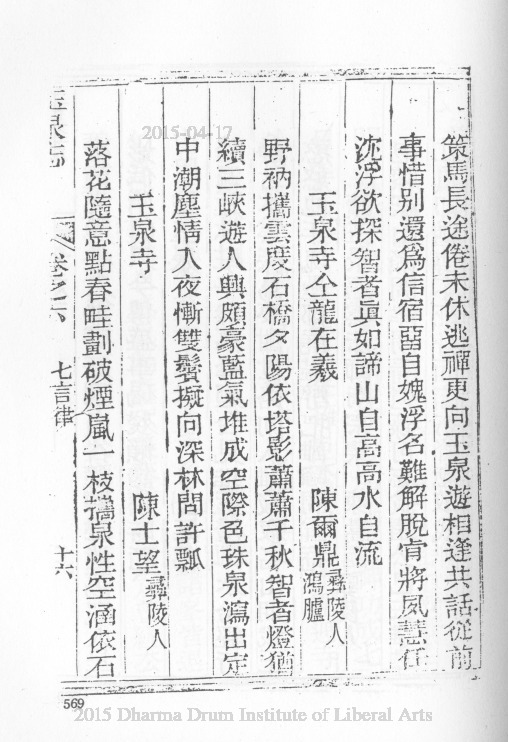 策馬長途倦未休逃禪更向玉泉遊相逢共話從前
事惜別還爲信宿畱自媿浮名難解脫肯將夙慧任
沈浮欲探智者眞如諦山自高高水自流
玉泉寺仝龍在羲 陳爾鼎彝陵人鴻臚
野衲攜雲度石橋夕陽依塔影蕭蕭千秋智者燈猶
續三峽遊人興頗豪藍氣堆成空際色珠泉瀉出定
中潮塵情入夜慚雙鬢擬向深林問許瓢
玉泉寺 陳士望彝陵人
落花隨意點春畦劃破煙嵐一枝攜泉性空涵依石
玉泉志 卷之六 七言律 十六
2015-04-17
569
2015 Dharma Drum Institute of Liberal Arts